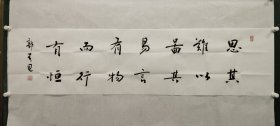 思其
難以
圖其
易言
有物
而行
有恒